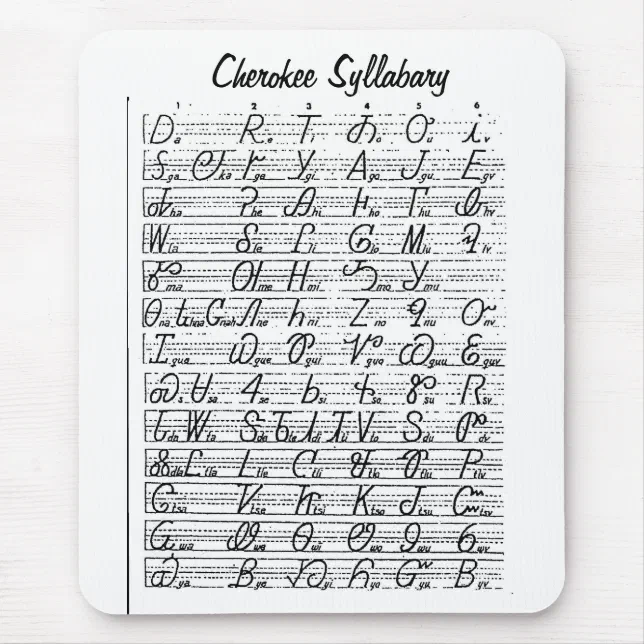 Cherokee Syllabary
1 2 3 4 5 6
Ꭰa Ꭱe Ꭲi Ꭳo Ꭴu Ꭵv
Ꭶga Ꭷka Ꭸge Ꭹgi Ꭺgo Ꭻgu Ꭼgv
Ꭽha Ꭾhe Ꭿhi Ꮀho Ꮁhu Ꮂhv
Ꮃla Ꮄle Ꮅli Ꮆlo Ꮇlu Ꮈlv
Ꮉma Ꮊme Ꮋmi Ꮌmo Ꮍmu
Ꮎna Ꮏhna Ꮐnah Ꮑne Ꮒni Ꮓno Ꮔnu Ꮕnv
Ꮖqua Ꮗque Ꮘqui Ꮙquo Ꮚquu Ꮛquv
Ꮝs Ꮜsa Ꮞse Ꮟsi Ꮠso Ꮡsu Ꮢsv
Ꮣda Ꮤta Ꮥde Ꮦte Ꮧdi Ꮨti Ꮩdo Ꮪdu Ꮫdv
Ꮬdla Ꮭtla Ꮮtle Ꮯtli Ꮰtlo Ꮱtlu Ꮲtlv
Ꮳtsa Ꮴtse Ꮵtsi Ꮶtso Ꮷtsu Ꮸtsv
Ꮹwa Ꮺwe Ꮻwi Ꮼwo Ꮽwu Ꮾwv
Ꮿya Ᏸye Ᏹyi Ᏺyo Ᏻyu Ᏼyv